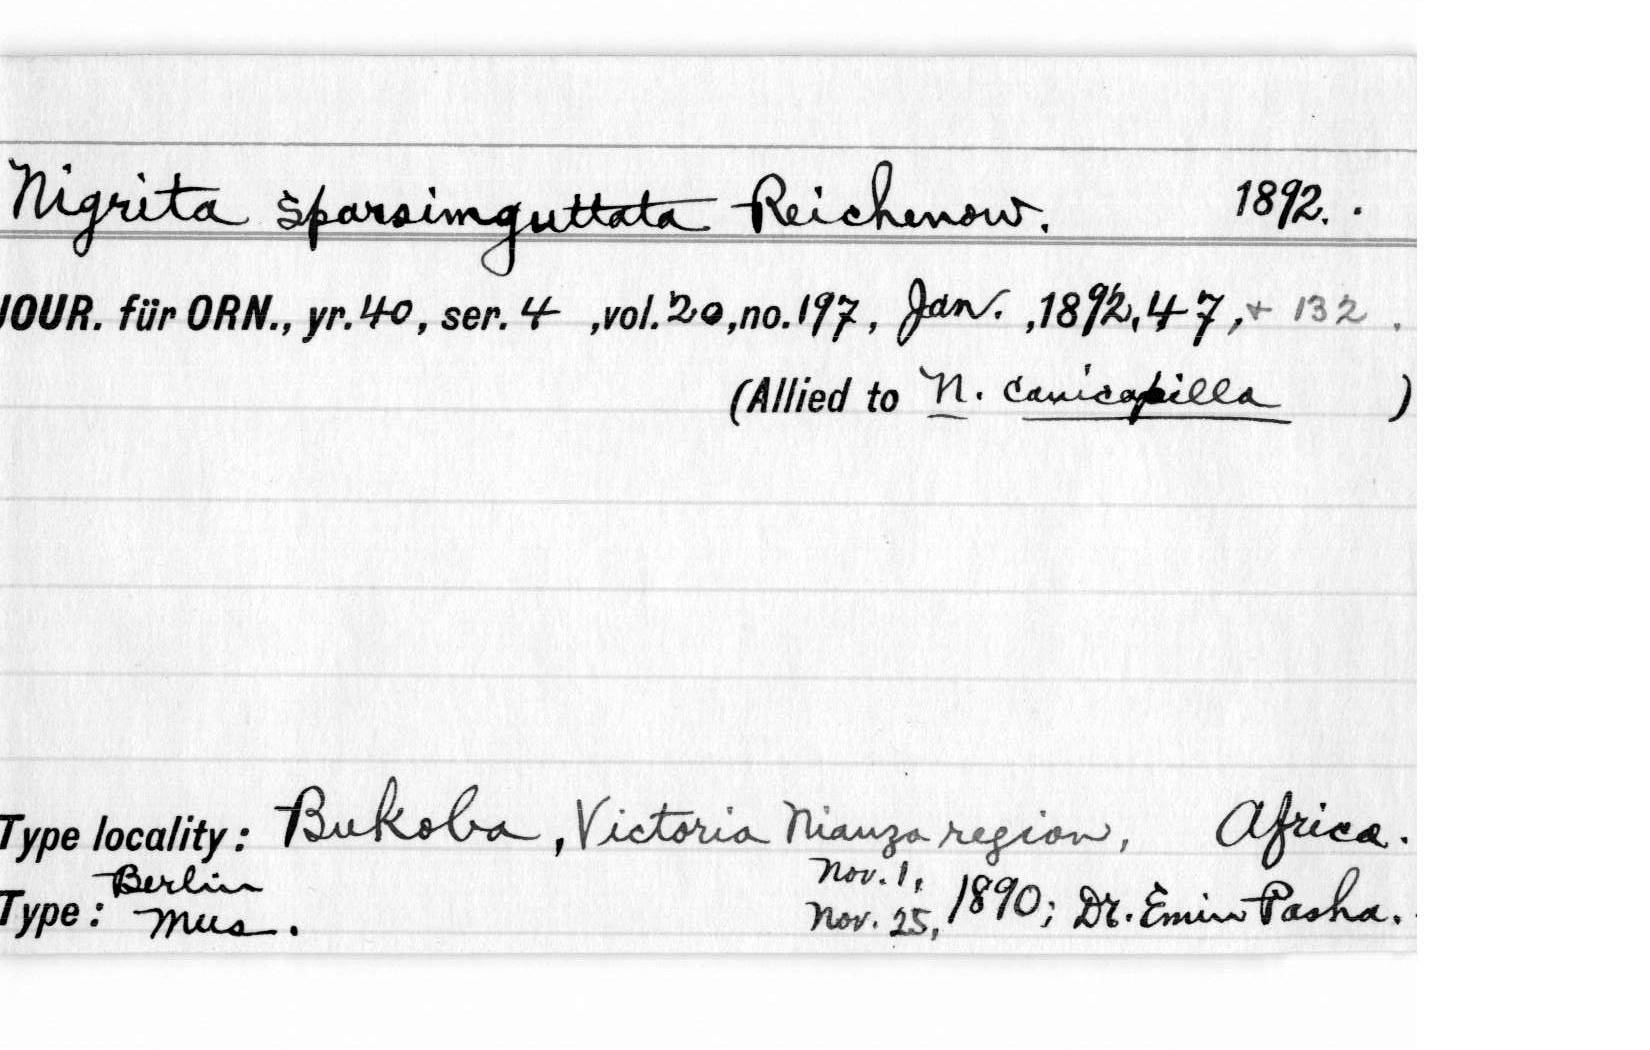 Nigrita sparsimguttata Reichenow. 1892. .
JOUR. für ORN., yr. 40, ser. 4 ,vol. 20, no. 197, Jan. ,1892, 47, + 132 .
(Allied to N. canicapilla )
Type locality: Bukoba, Victoria Nianza region, Africa.
Nov. 1,
Type: Berlin Mus. Nov. 25, 1890; Dr. Emin Pasha.